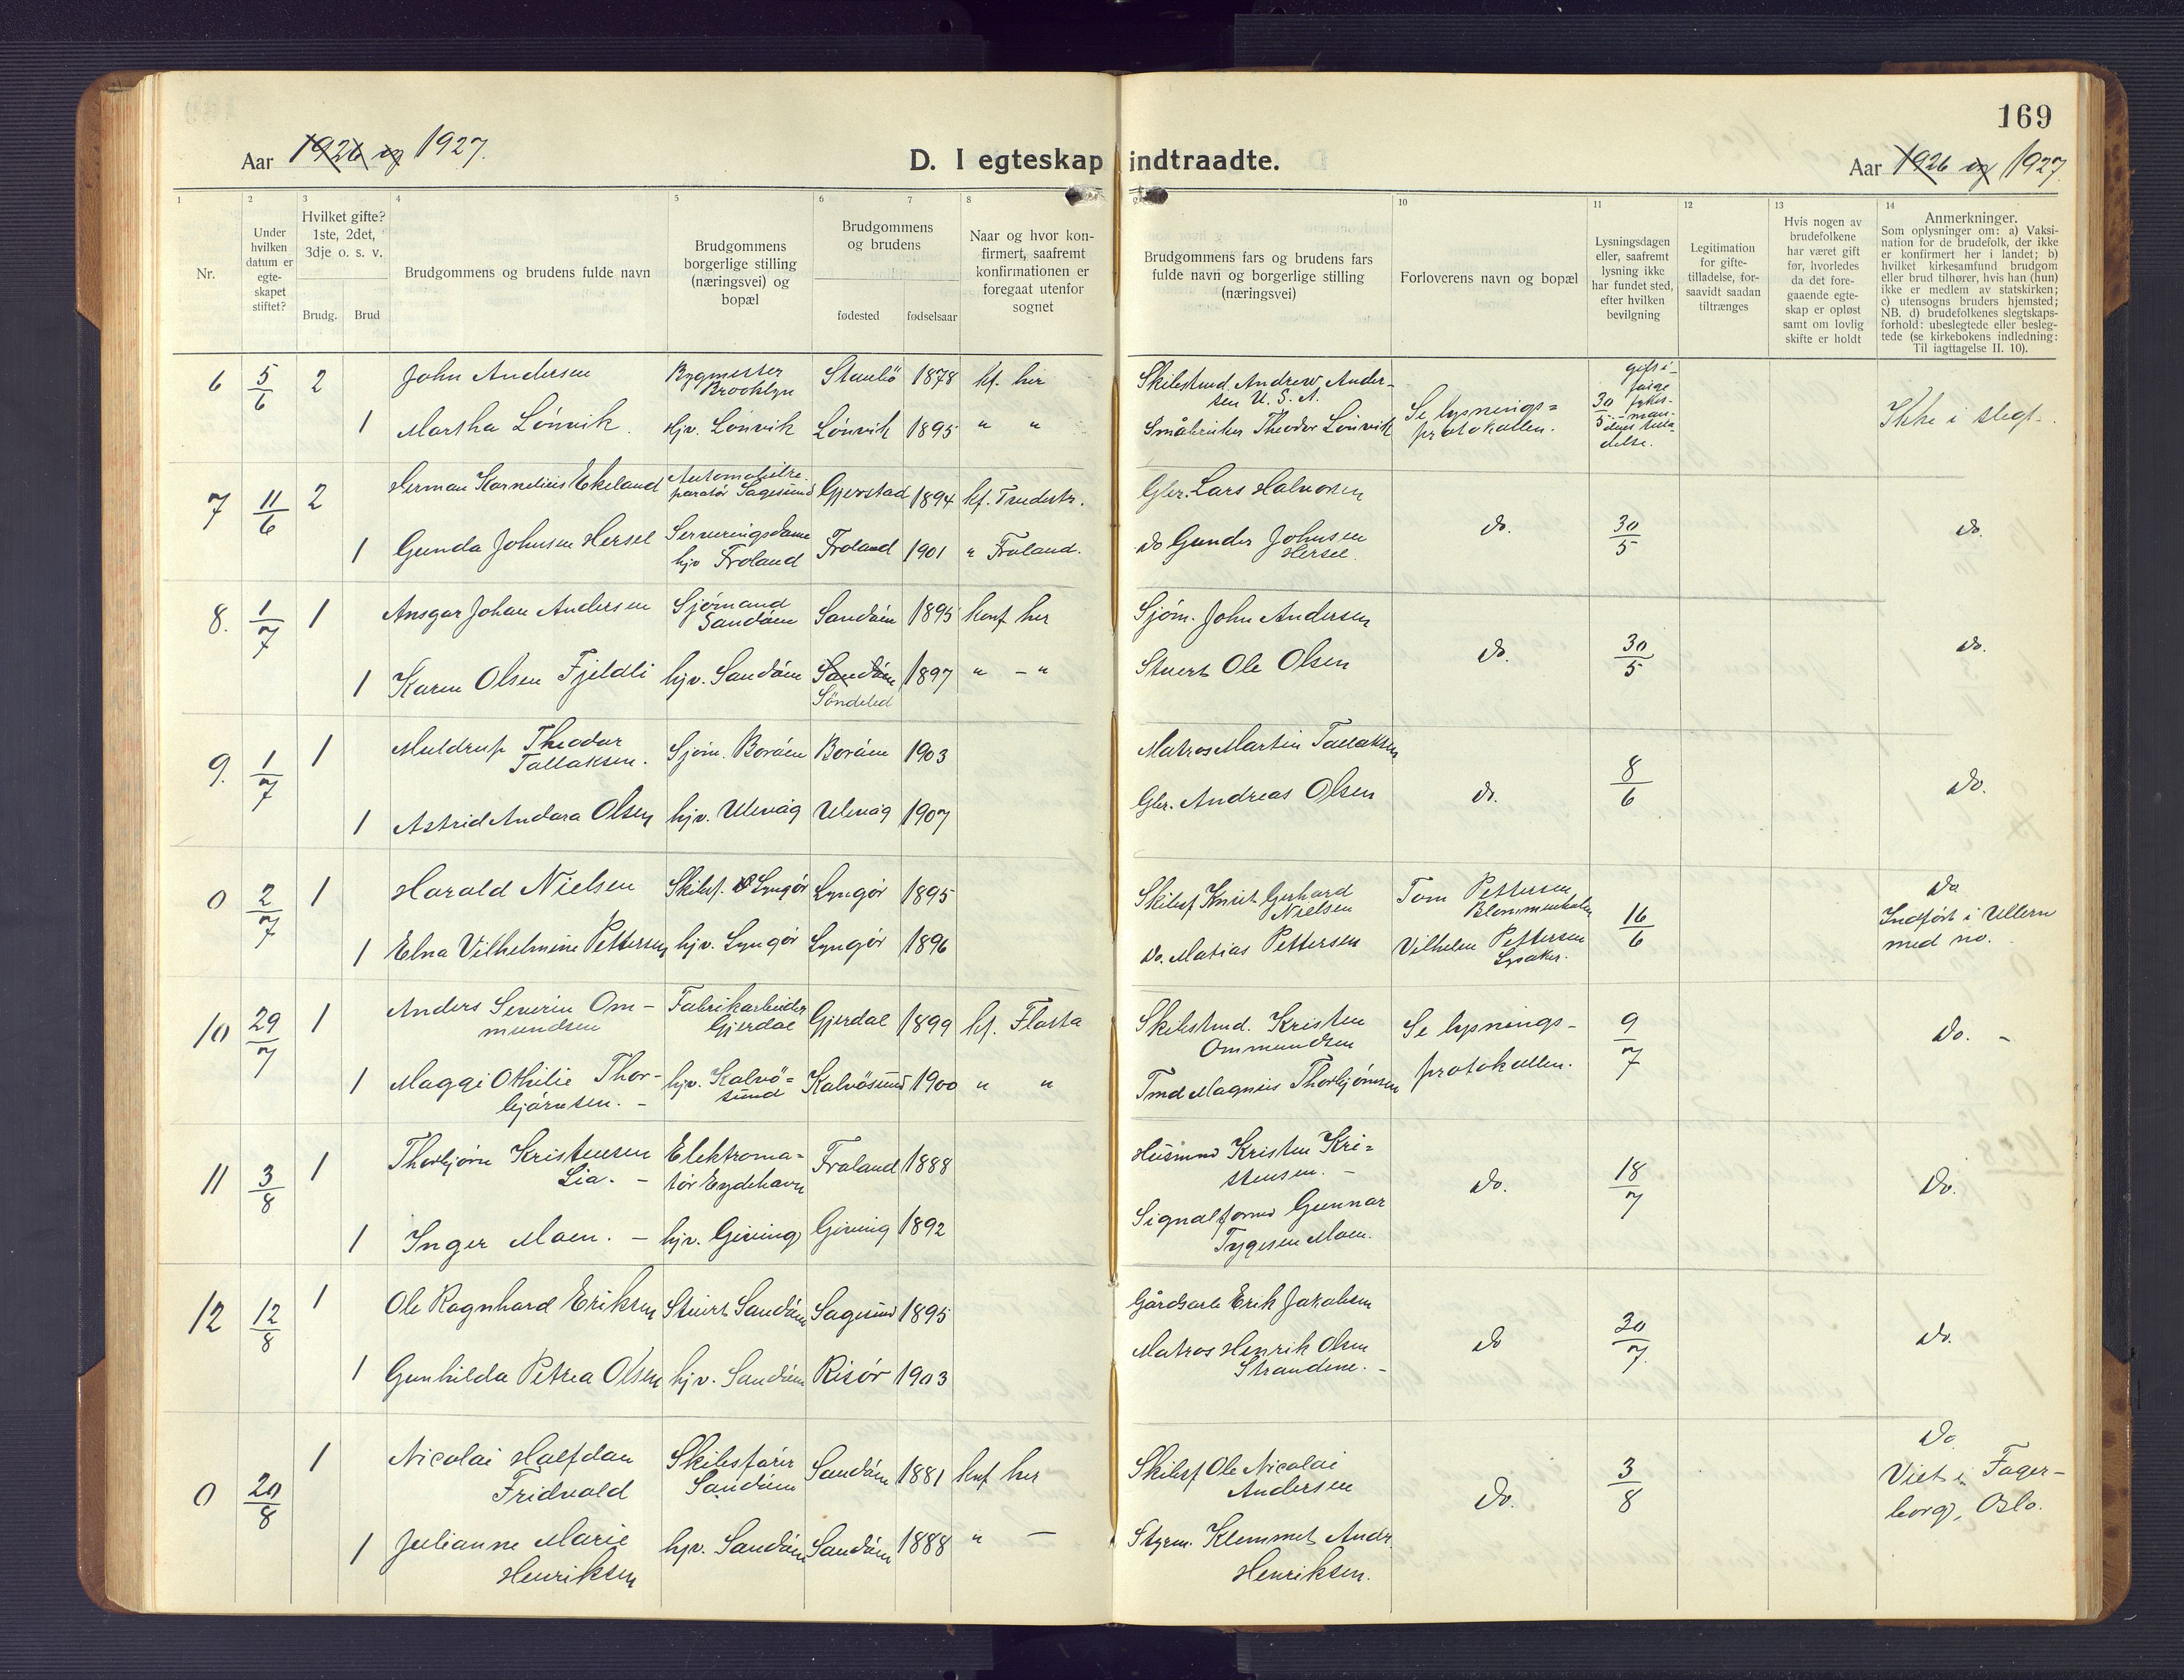 169
Aar 1926 og 1927.
D. I egteskap indtraadte.
Aar 1926 og 1927
1 2 3 4 5 6 7 8 10 11 12 13 14
Nr.
Under hvilken datum er egte-skapet stiftet?
Hvilket gifte? 1ste, 2det, 3dje o. s. v.
Brudg. Brud
Brudgommens og brudens fulde navn
Brudgommens borgerlige stilling (næringsvei) og bopæl
Brudgommens og brudens
fødested fødselsaar
Naar og hvor kon-firmert, saafremt konfirmationen er foregaat utenfor sognet
Brudgommens fars og brudens fars fulde navn og borgerlige stilling (næringsvei)
Forloverens navn og bopæl
Lysningsdagen eller, saafremt lysning ikke har fundet sted, efter hvilken bevilgning
Legitimation for gifte-tilladelse, for-saavidt saadan tiltrænges
Hvis nogen av brudefolkene har været gift før, hvorledes da det fore-gaaende egte-skap er opløst samt om lovlig skifte er holdt
Anmerkninger.
Som oplysninger om: a) Vaksi-nation for de brudefolk, der ikke er konfirmert her i landet; b) hvilket kirkesamfund brudgom eller brud tilhører, hvis han (hun) ikke er medlem av statskirken; c) utensogns bruders hjemsted; NB. d) brudefolkenes slegtskaps-forhold: ubeslegtede eller besleg-tede (se kirkebokens indledning: Til iagttagelse II. 10).
6 5/6 2 John Andersen Bygmester Brooklyn Staubö 1878 kf. her Skibstmd. Andrew Ander-sen U. S. A. Se lysnings= protokollen. 30/5 Ikke i slegt.
1 Martha Lönvik. hjv. Lönvik Lönvik 1895 " " Småbruker Theodor Lönvik
7 11/6 2 Herman Kornelius Ekeland Automobilre-paratör Sagesund Gjerstad 1894 kf. Tvedestr. Gbr. Lars Halvorsen do. 30/5 do.
1 Gunda Johnsen Hersel Serveringsdame hjv Froland Froland 1901 " Froland. do Gunder Johnsen Hersel.
8. 1/7 1 Ansgar Johan Andersen Sjömand Sandöen Sandöen 1895 konf her Sjöm. John Andersen do. 30/5 do.
1 Karen Olsen Fjeldli hjv. Sandöen Sandöen Söndeled 1897 " - " Stuert Ole Olsen
9. 1/7 1 Muldrup Theodor Tallaksen. Sjöm. Boröen Boröen 1903 Matros Martin Tallaksen do. 8/6 do.
1 Astrid Andora Olsen hjv. Ulevåg Ulevåg 1907 Gbr. Andreas Olsen
0 2/7 1 Harald Nielsen Skibsf. Lyngör Lyngör 1895 Skibsf Knut Gerhard Nielsen Tom Pettersen Blommenholm 16/6 do Indfört i Ullern med no.
1 Elna Vilhelmine Pettersen hjv. Lyngör Lyngör 1896 do. Matias Pettersen Vilhelm Pettersen Lysaker.
10 29/7 1 Anders Severin Om-mundsen Fabrikarbeider Gjerdal Gjerdal 1899 kf. Flosta Skibstmd. Kristen Ommundsen Se lysnings-protokollen. 9/7 do. -
1 Maggi Othilie Thor-björnsen. - hjv. Kalvö=sund Kalvösund 1900 " " Tmd Magnus Thorbjörnsen
11 3/8 1 Thorbjörn Kristensen Lia. - Elektroma=tör Eydehavn Froland 1888 Husmnd Kristen Kri=stensen. - do. 18/7 do.
1 Inger Moen. - hjv. Giving Giving 1892 Signalformd Gunnar Tygesen Moen.
12 12/8 1 Ole Ragnhard Eriksen Stuert Sandöen Sagesund 1895 Gårdsarb Erik Jakobsen do 30/7. do.
1 Gunhilda Petrea Olsen hjv. Sandöen Risör 1903 Matros Henrik Olsen Strandene. -
0 20/8 1 Nicolai Halfdan Fridvald Skibsförer Sandöen Sandöen 1881 konf her Skibsf Ole Nicolai Andersen do. 3/8 do Viet i Fager-borg, Oslo.
1 Julianne Marie Henriksen hjv. Sandöen Sandöen 1888 " — Styrm. Klemmet Andr. Henriksen.